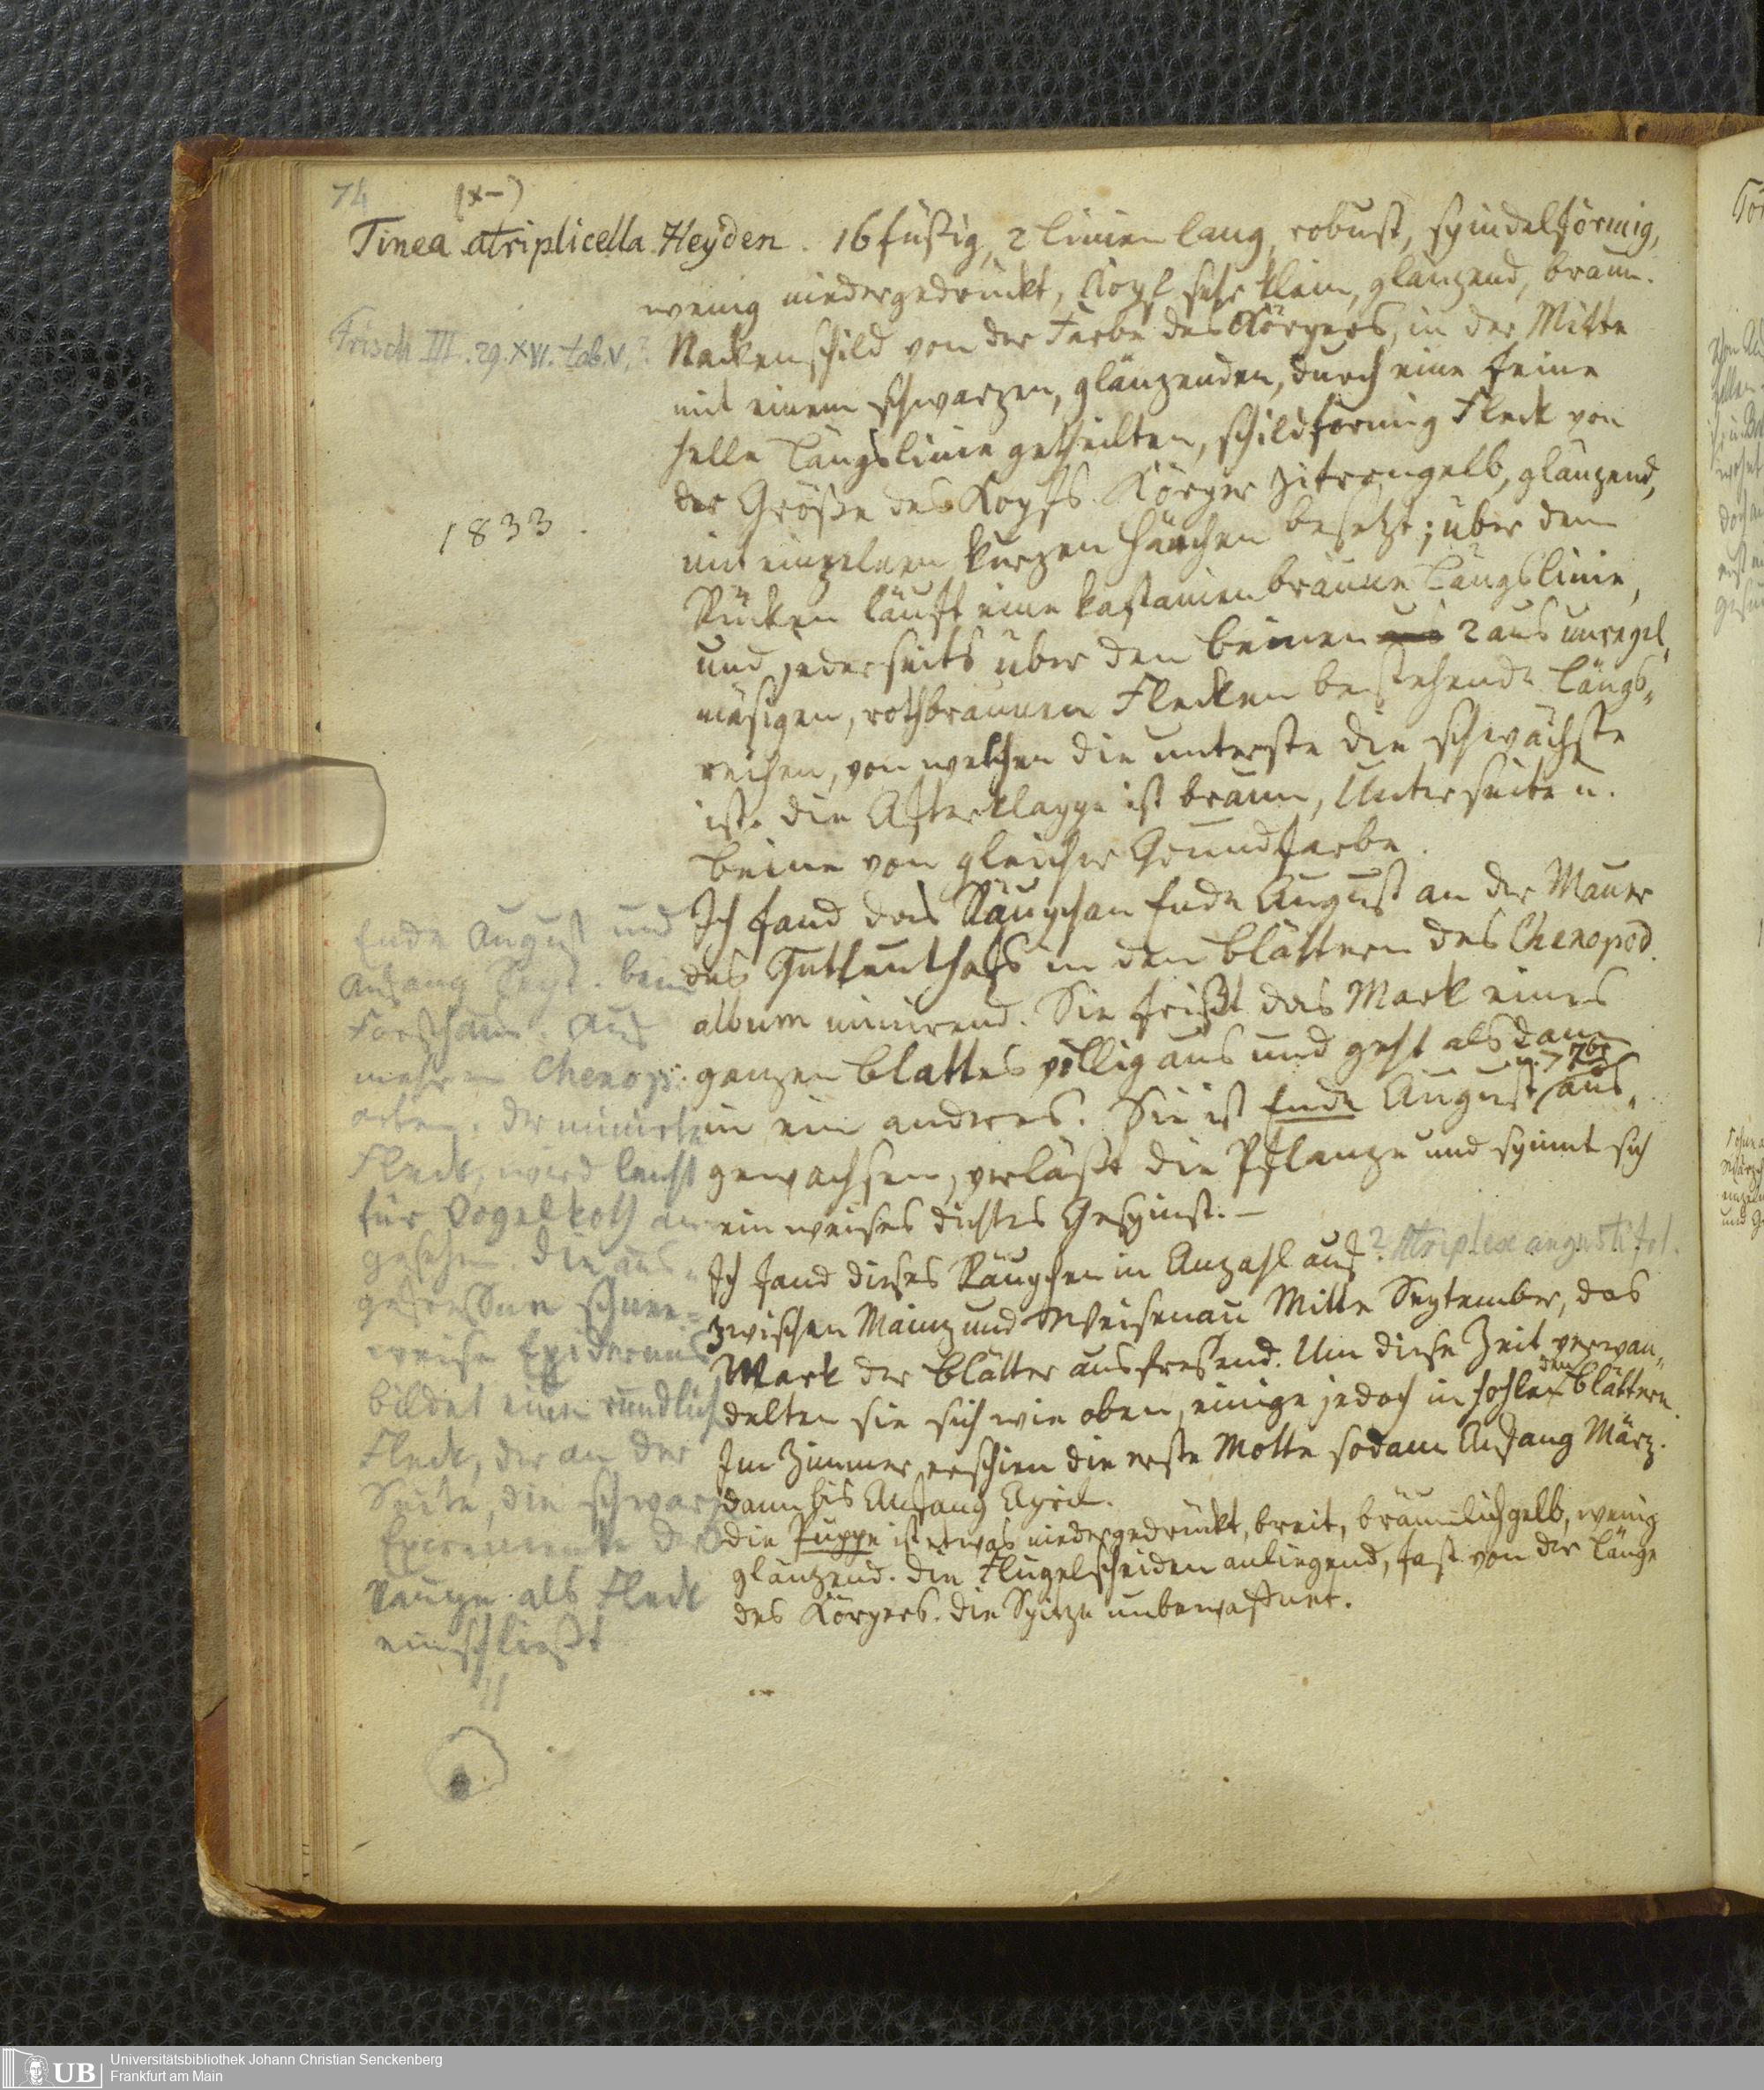 74
(x–)
Tinea atriplicella Heyden. 16füßig, 2 Linien lang, robust, spindelförmig,
wenig niedergedrückt, Kopf sehr klein, glänzend, braun.
Frisch III. 29. XVI. tab. V.?
Nackenschild von der Farbe des Körpers, in der Mitte
mit einem schwarzen, glänzenden, durch eine feine
helle Längslinie getheilten, schildförmig Fleck von
der Größe des Kopfs. Körper zitrongelb, glänzend,
1833.
mit einzelnen kurzen Härchen besetzt; über den
Rücken läuft eine kastanienbraune Längslinie,
und jederseits über den Beinen 2 aus unregel,
mäsigen, rothbraunen Flecken bestehende Längs,
reihen, von welchen die unterste die schwächste
ist. Die Afterklappe ist braun, Unterseite u.
Beine von gleicher Grundfarbe.
Ich fand das Räupchen Ende August an der Mauer
des Gutleuthofs in den Blättern des Chenopod.
album minirend. Sie frißt das Mark eines
ganzen Blattes völlig aus und geht alsdann
in ein anderes. Sie ist Ende August u. 7br aus,
gewachsen, verläßt die Pflanze und spinnt sich
ein weises dichtes Gespinst. –
Ich fand dieses Räupchen in Anzahl auf ? Atriplex angustifol.
zwischen Mainz und Weisenau Mitte September, das
Mark der Blätter ausfressend. Um diese Zeit verwan,
delten sie sich wie oben, einige jedoch in hohlen den Blättern.
Im Zimmer erschien die erste Motte sodann Anfang März.
dann bis Anfang April.
Die Puppe ist etwas niedergedrückt, breit, bräunlichgelb, wenig
glänzend. Die Flügelscheiden anliegend, fast von der Länge
des Körpers. Die Spitze unbewaffnet.
Ende August und
Anfang Sept. beim
Forsthaus. Auf
mehreren Chenop:
arten. Der minirte
Fleck, wird leicht
für Vogelkoth an
gesehen. Die aus,
gefressene schnee=
weise Epidermis
bildet einen rundlich
Fleck, der an der
Seite, die schwarz
Excremente der
Raupe als Fleck
einschließt